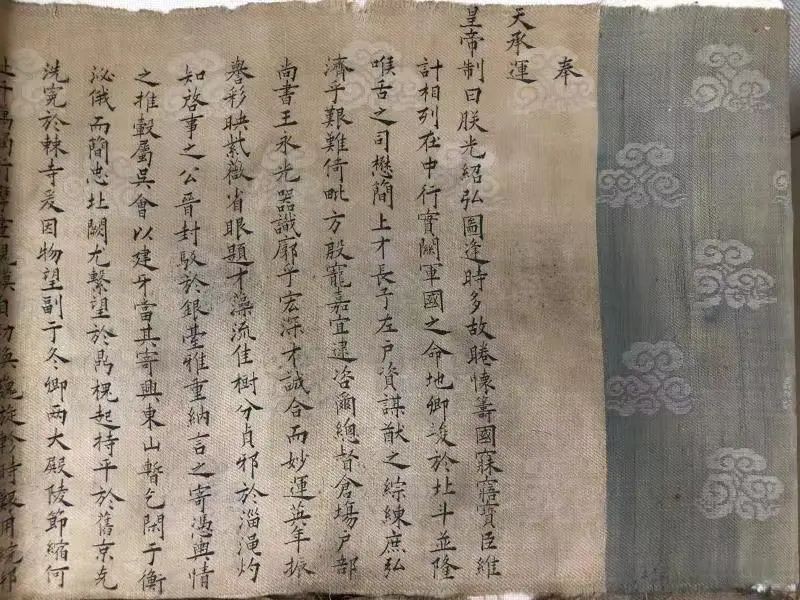 奉
天承運
皇帝制曰朕光紹弘圖逢時多故睠懷籌國寤寐寶臣維
計相列在中行實關軍國之命地卿峻於北斗並隆
喉舌之司懋簡上才長予左戶資謀猷之綜練庶弘
濟乎艱難倚毗方殷寵嘉宜逮咨爾總督倉場戶部
尚書王永光器識廓乎宏深才誠合而妙運英年振
譽彩映紫薇省眼題才藻流佳樹分貞邪於淄澠灼
知啓事之公晉封駁於銀臺雅重納言之寄憑輿情
之推轂屬吳會以建牙當其寄興東山暫乞閑于衡
泌俄而簡忠北闕尤繫望於卨槐起持平於舊京允
洗冤於棘寺爰因物望副于冬卿兩大殿陵節縮何